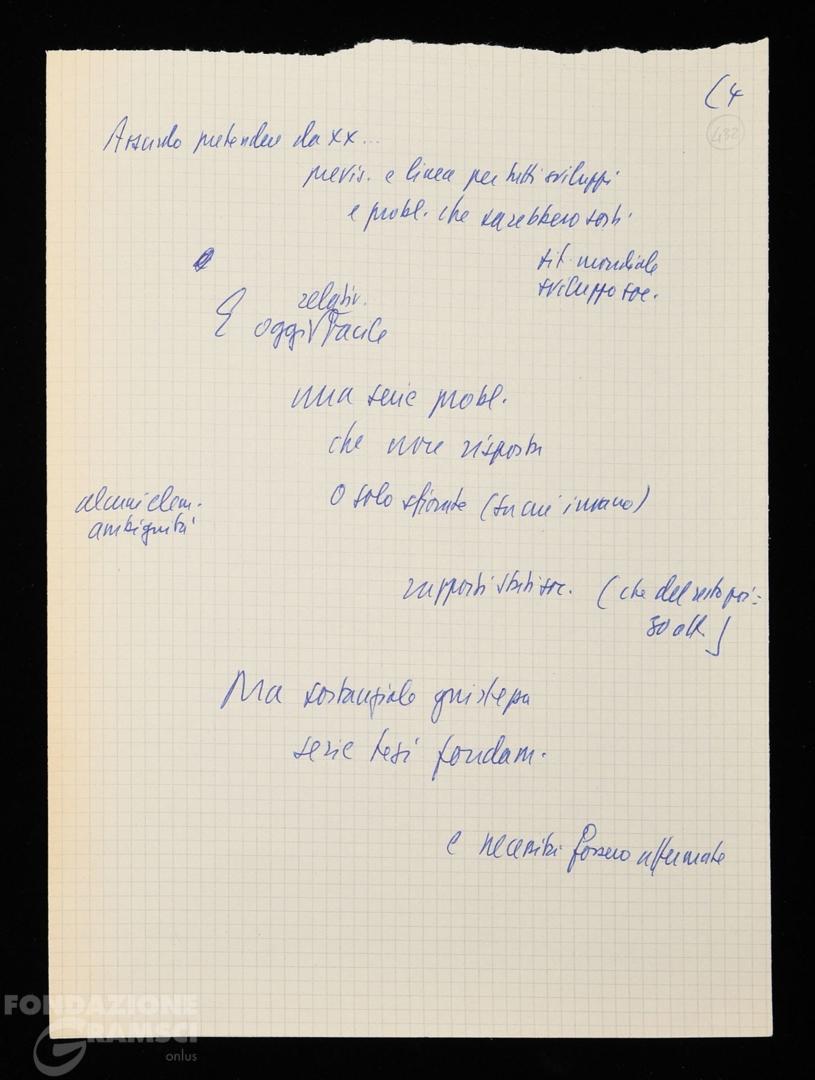 (4
432
Assurdo pretendere da XX...
previs. e linea per tutti sviluppi
e probl. che sarebbero sorti
sit. mondiale
sviluppo soc.
relativ.
E oggi facile
una serie probl.
che non risposta
o solo sfiorate (su cui invano)
alcuni elem.
ambiguità
rapporti stati soc. (che del resto poi
30 ott.)
Ma sostanziale giustezza
serie tesi fondam.
e necessità fossero affermate
FONDAZIONE
GRAMSCI
onlus